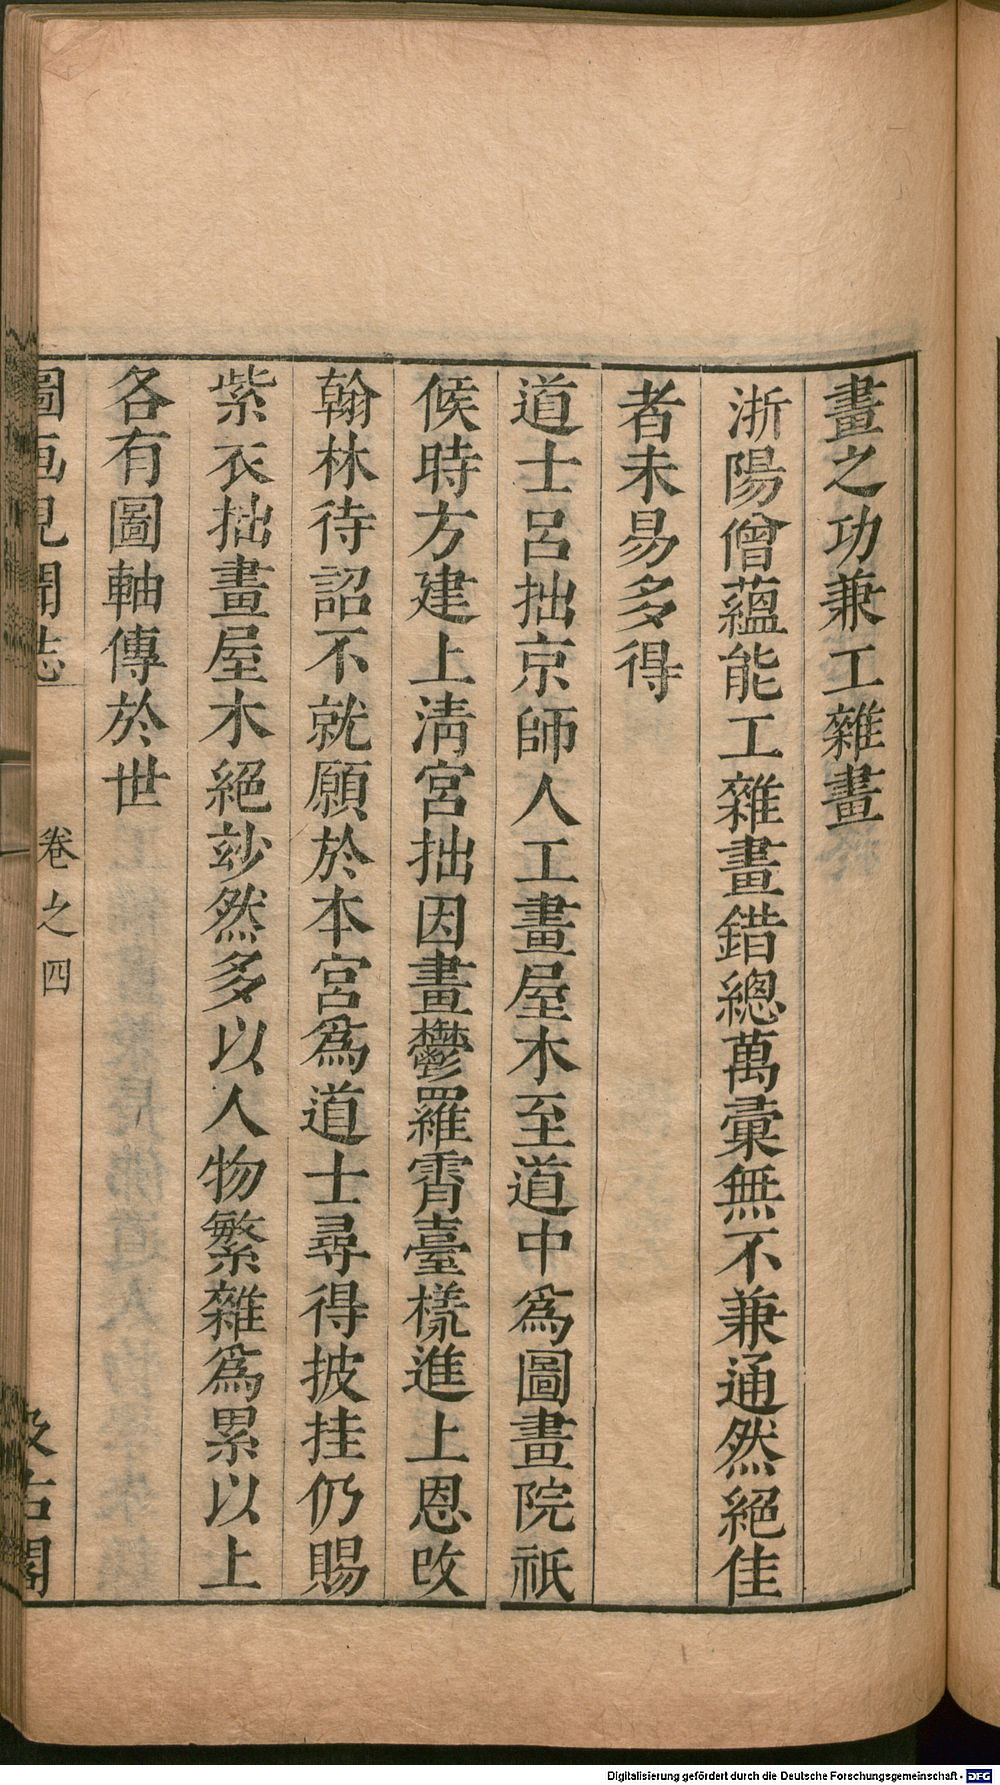 畫之功兼工雜畫
浙陽僧蘊能工雜畫錯總萬彙無不兼通然絕佳
者未易多得
道士呂拙京師人工畫屋木至道中爲圖畫院祇
候時方建上淸宮拙因畫鬱羅霄臺樣進上恩改
翰林待詔不就願於本宮爲道士尋得披挂仍賜
紫衣拙畫屋木絕玅然多以人物繁雜爲累以上
各有圖軸傳於世
圖画見聞志 卷之四 汲古閣
Digitalisierung gefördert durch die Deutsche Forschungsgemeinschaft - DFG